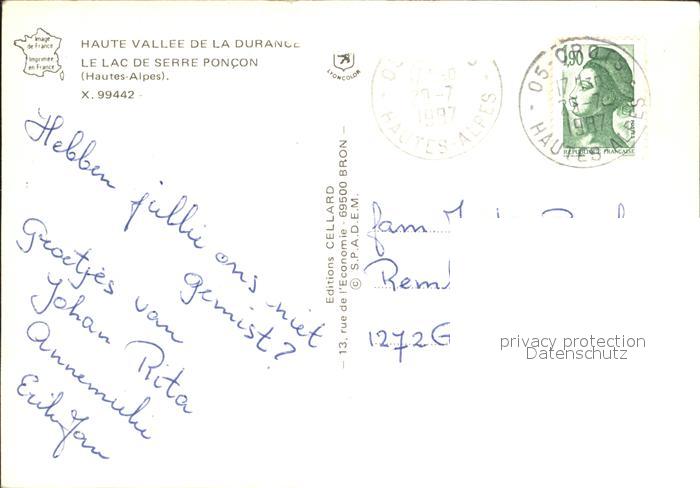 Image
de France
Imprimée
en France
HAUTE VALLEE DE LA DURANCE
LE LAC DE SERRE PONÇON
(Hautes-Alpes).
X. 99442 -
LYONCOLOR
HAUTES-ALPES
1997
05-CROTS
HAUTES-ALPES
1997
1,90
REPUBLIQUE FRANÇAISE
Hebben jullie ons niet
gemist?
Groetjes van
Johan Rita
Annemieke
Erik-Jan
Editions CELLARD
— 13, rue de l'Economie - 69500 BRON —
© S.P.A.D.E.M.
fam
Rem
1272G
privacy protection
Datenschutz